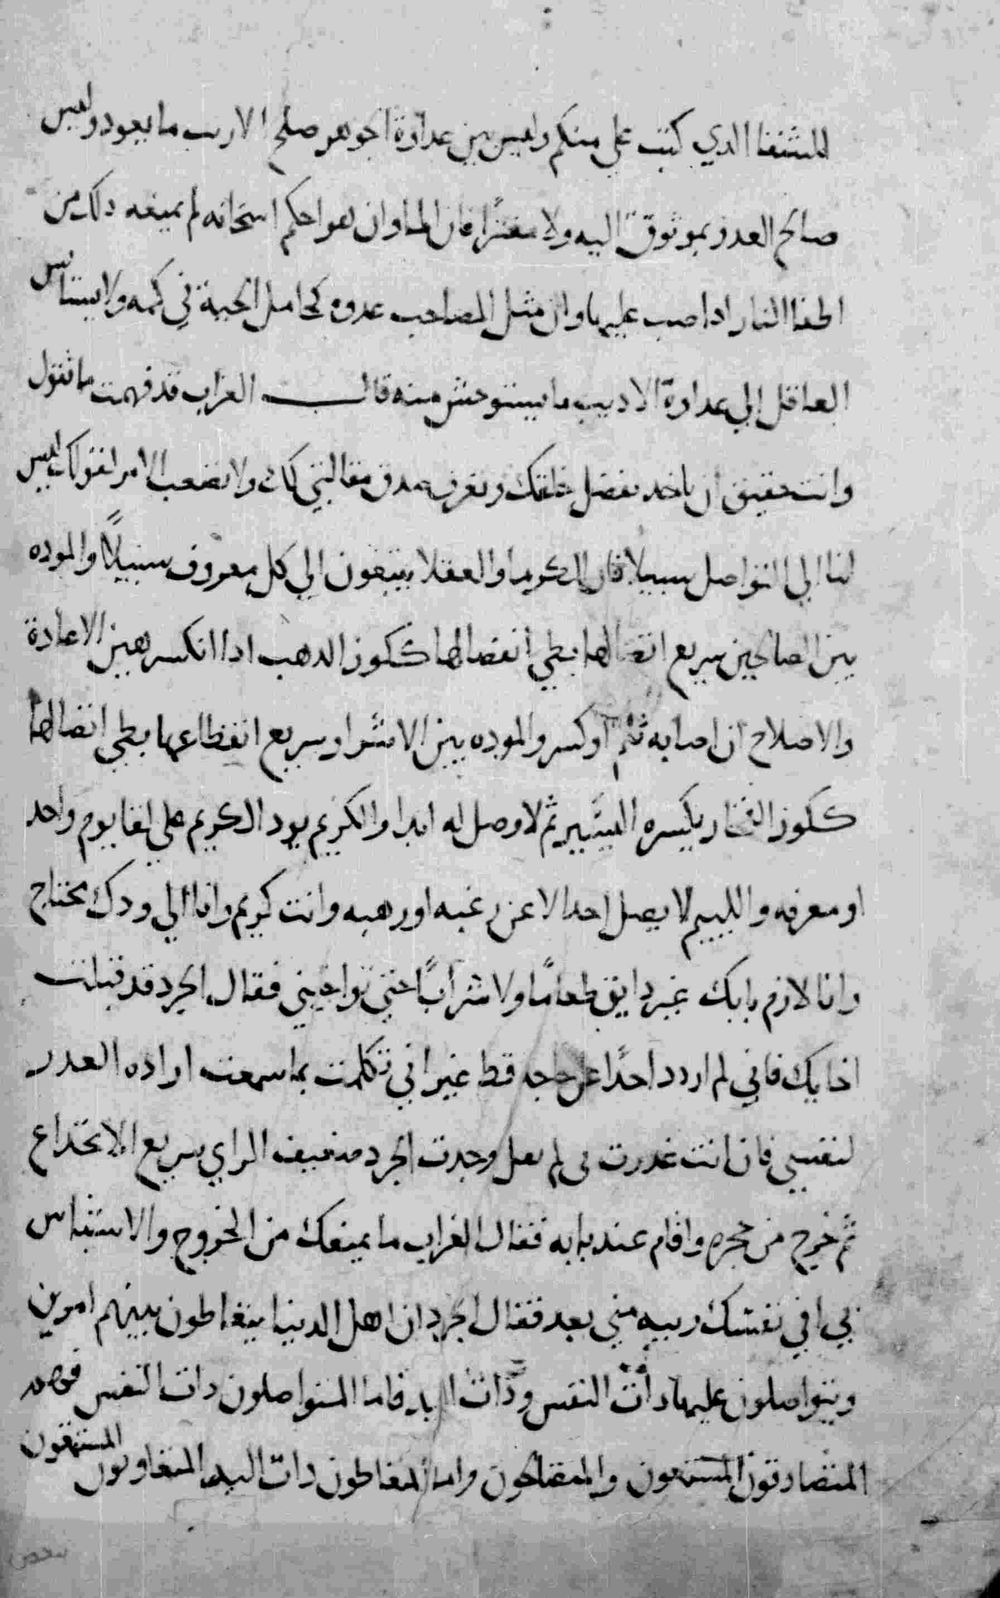 للشقا الذي كتب علي منكم وليس بين عداوة الجوهر صلح الا ريب ما يعود وليس
صالح العدو بموثوق اليه ولا مغترًا فان الما وان هو احكم اسخانه لم يمنعه دلك من
اطفا النار ادا صب عليها وان مثل المصاحب عدوه كحامل الحية في كمه ولا يستانس
العاقل الي عداوة الاديب ما يستوحش منه قال الغراب قد فهمت ما تقول
وانت حقيق ان ياخد بفضل خلقك وتعرف صدق مقالتي لك ولا تصعب الامر بقولك ليس
لنا الي التواصل سبيلا فان الكرما والعقلا يبتغون الي كل معروف سبيلاً والموده
بين الصالحين سريع اتصالها بطي انفصالها ككوز الدهب ادا انكسر هين الاعادة
والاصلاح ان اصابه ثلم او كسر والموده بين الاشرار سريع انقطاعها بطي اتصالها
ككوز الفخار يكسره اليسير ثم لا وصل له ابدا والكريم يود الكريم علي لقا يوم واحد
او معرفه والليم لا يصل احدا الا عن رغبه او رهبه وانت كريم وانا الي ودك محتاج
وانا لازم بابك غير دايق طعامًا ولا شرابًا حتي تواخيني فقال الجرد قد قبلت
اخايك فاني لم اردد احدًا عن حاجه قط غير اني تكلمت بما سمعت اراده العدر
لنفسي فان انت غدرت بي لم تقل وجدت الجرد ضعيف الراي سريع الانخداع
ثم خرج من جحره واقام عند بابه فقال الغراب ما يمنعك من الخروج والاستيناس
بي افي نفسك ريبه مني بعد فقال الجرد ان اهل الدنيا يتعاطون بينهم امرين
ويتواصلون عليها دات النفس ودات اليد فاما المتواصلون دات النفس فهم
المتصادقون المستمتعون والمتصالحون واما المتعاطون دات اليد المتعاونون المستمتعون